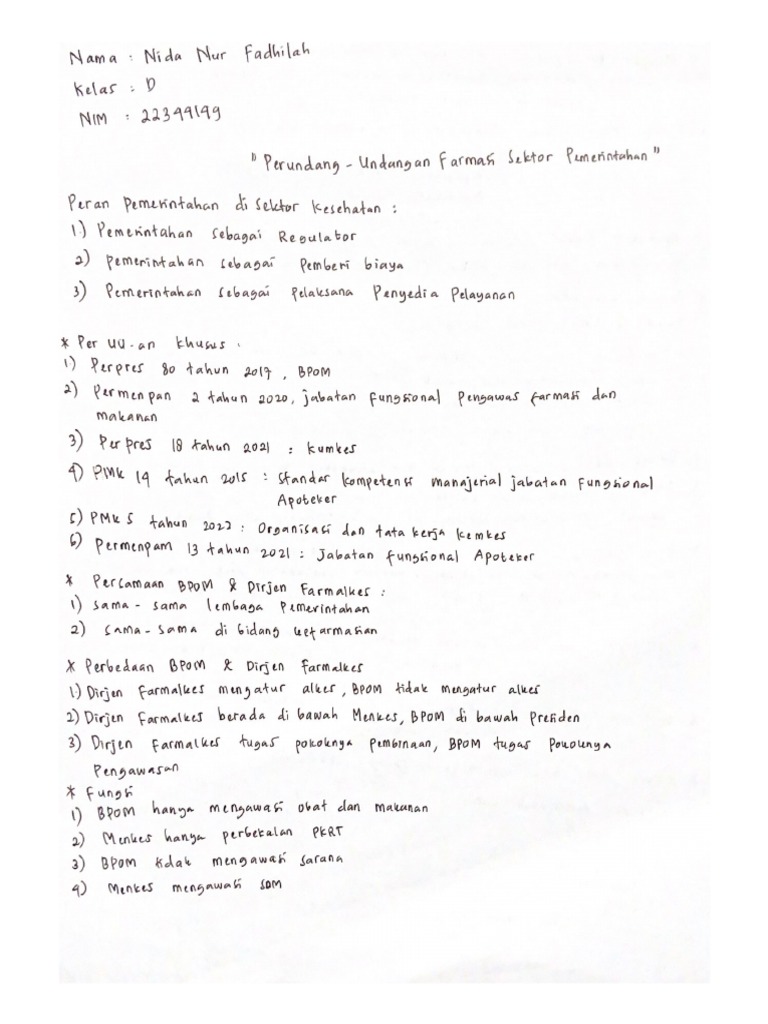 Nama : Nida Nur Fadhilah
Kelas : D
NIM : 22344149
" Perundang - Undangan Farmasi Sektor Pemerintahan "
Peran Pemerintahan di Sektor Kesehatan :
1.) Pemerintahan sebagai Regulator
2) Pemerintahan sebagai Pemberi biaya
3) Pemerintahan sebagai Pelaksana Penyedia Pelayanan
* Per UU-an khusus .
1) Perpres 80 tahun 2017 , BPOM
2) Permenpan 2 tahun 2020, jabatan fungsional Pengawas farmasi dan
makanan
3) Perpres 18 tahun 2021 : kumkes
4) PMK 14 tahun 2015 : Standar kompetensi manajerial jabatan fungsional
Apoteker
5) PMK 5 tahun 2022 : Organisasi dan tata kerja kemkes
6) Permenpam 13 tahun 2021 : Jabatan fungsional Apoteker
* Persamaan BPOM & Dirjen Farmalkes :
1) Sama - sama lembaga Pemerintahan
2) Sama-sama di bidang kefarmasian
* Perbedaan BPOM & Dirjen farmalkes
1) Dirjen farmalkes mengatur alkes , BPOM tidak mengatur alkes
2) Dirjen farmalkes berada di bawah Menkes, BPOM di bawah Presiden
3) Dirjen farmalkes tugas pokoknya pembinaan, BPOM tugas pokoknya
Pengawasan
* Fungsi
1) BPOM hanya mengawasi obat dan makanan
2) Menkes hanya perbekalan PKRT
3) BPOM tidak mengawasi sarana
4) Menkes mengawasi SDM